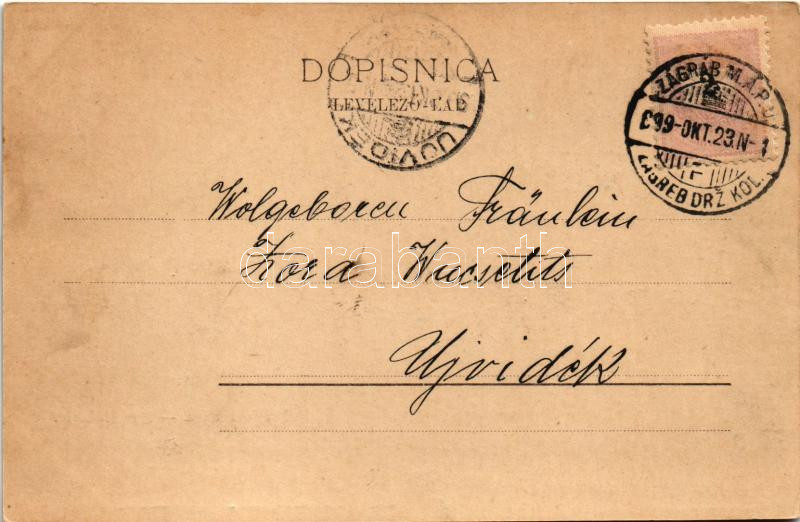 DOPISNICA
LEVELEZŐ-LAP
UJVIDÉK
ZÁGRÁB M.Á.P.U.
899-OKT.23.N-1
ZAGREB DRŽ KOL.
F
Wolgeboren Fräulein
Zora Wucsetits
Ujvidék
darabanth